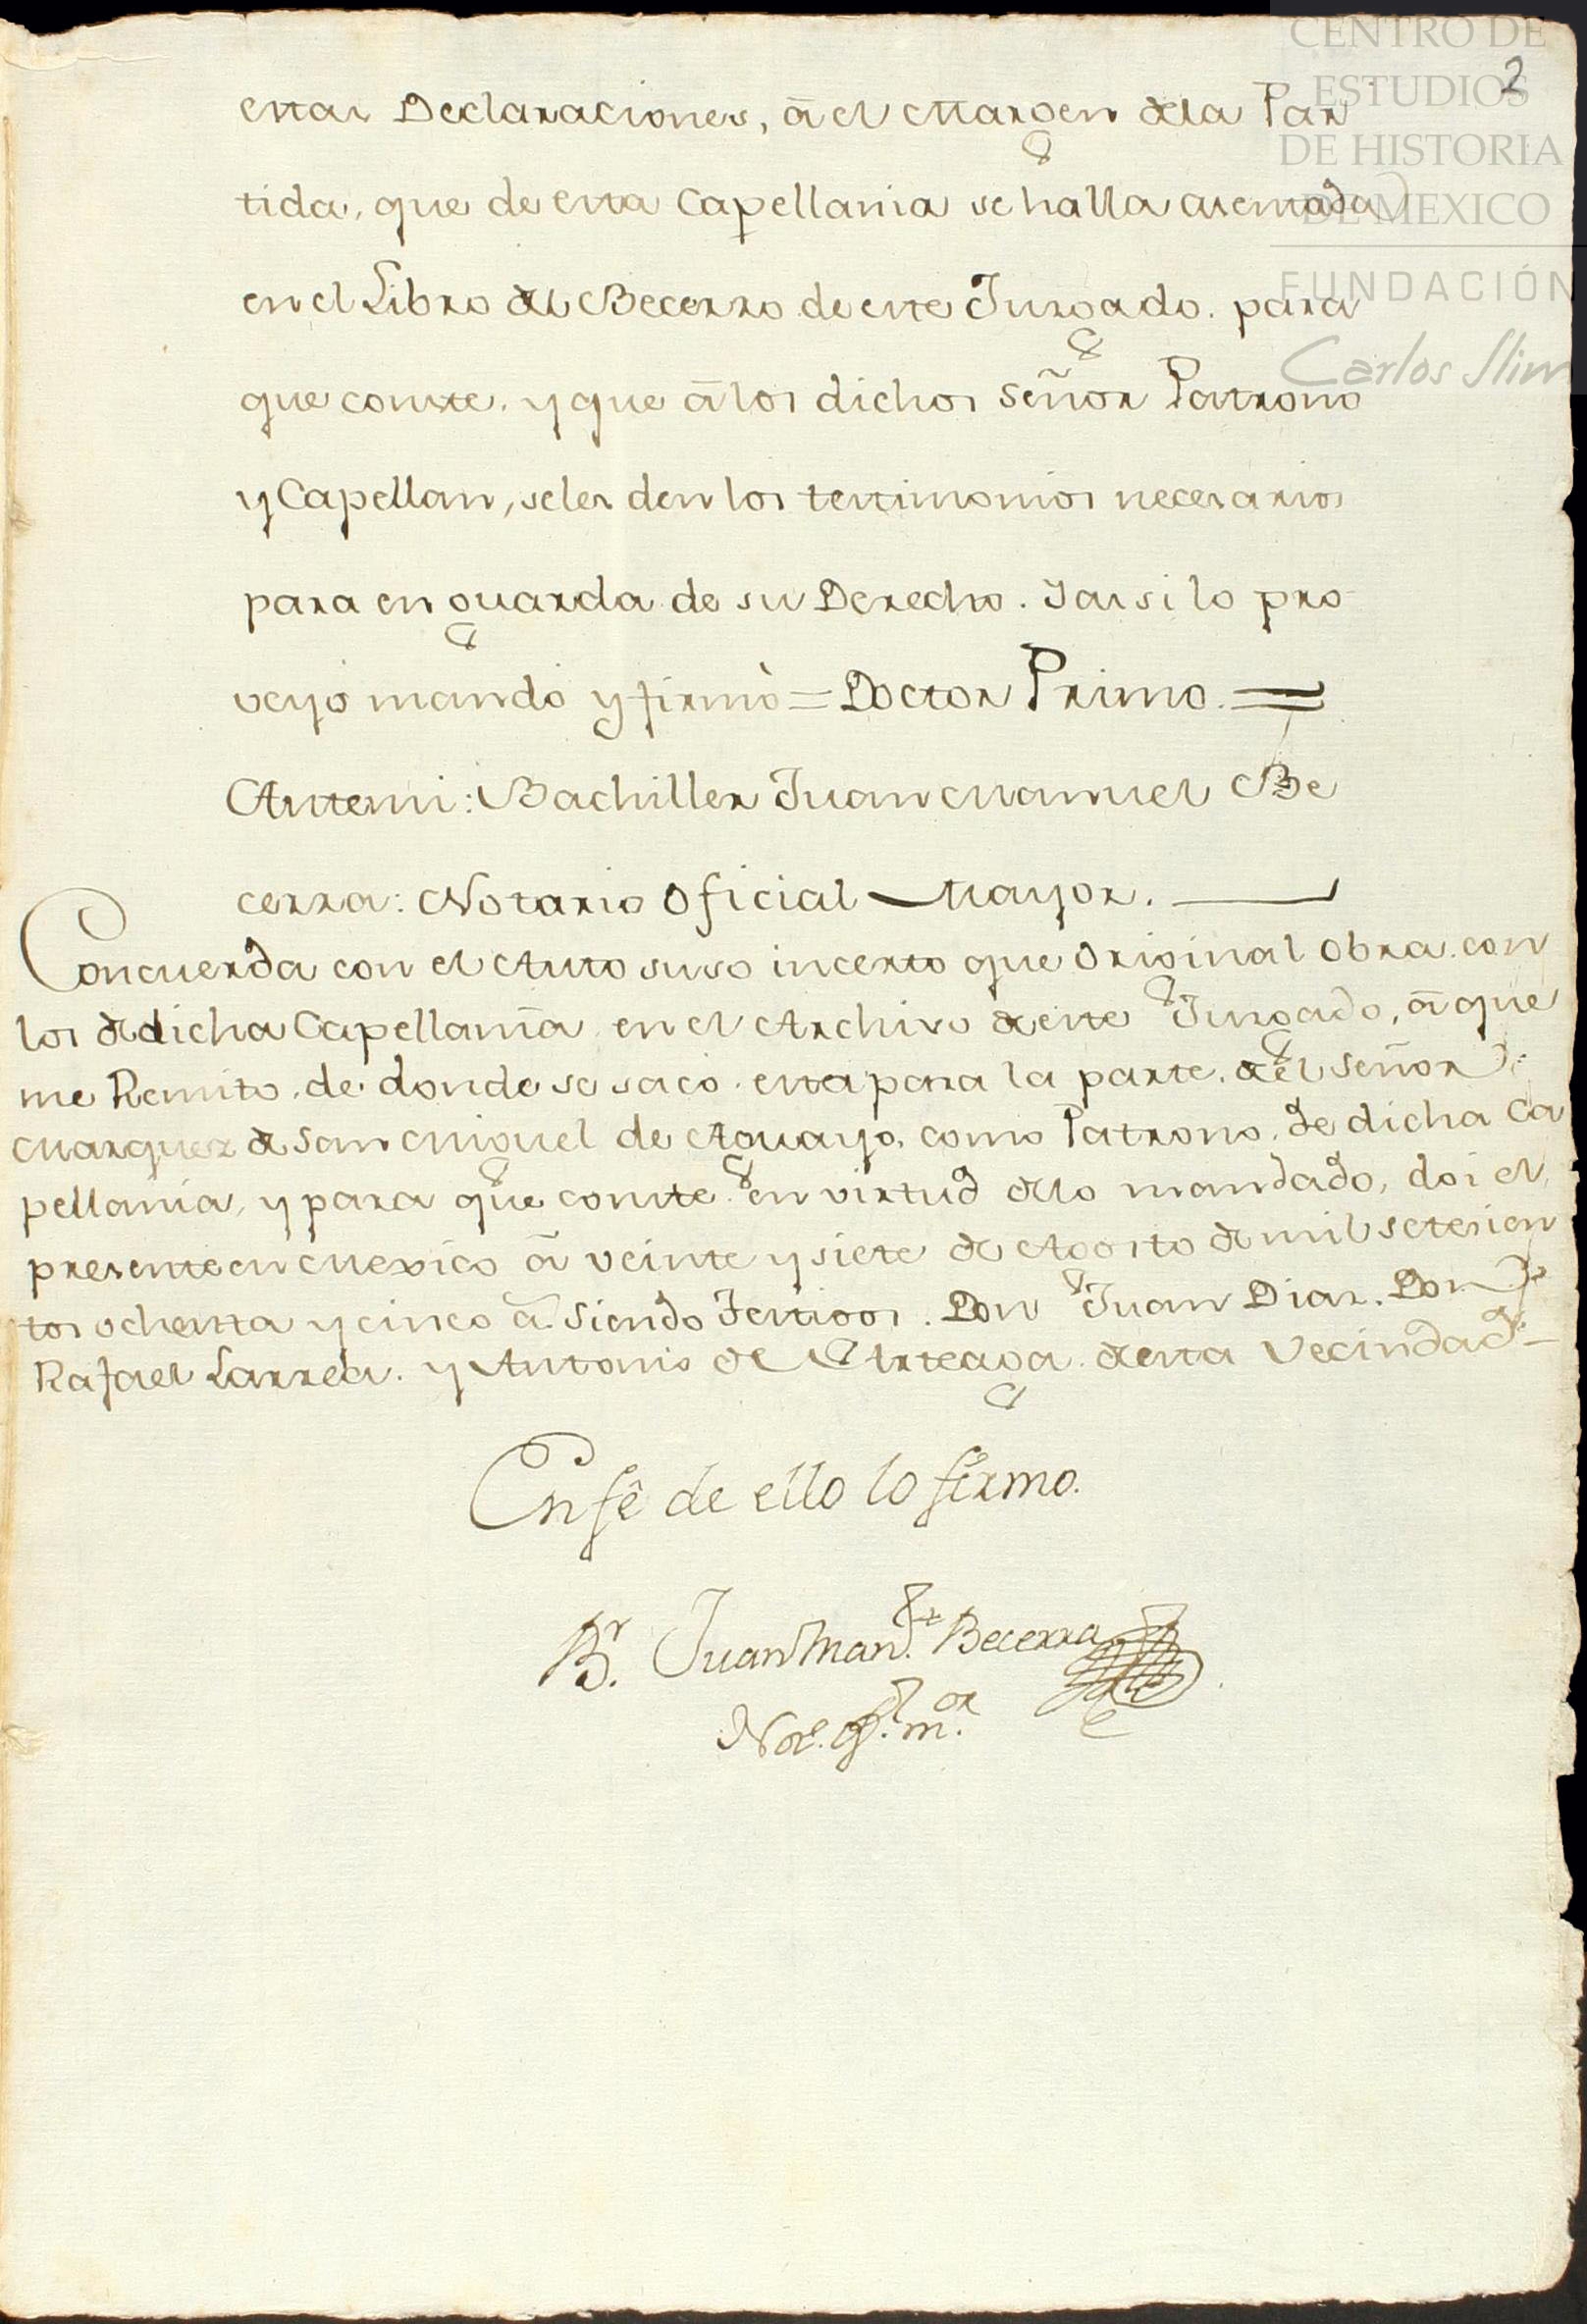 CENTRO DE
ESTUDIOS
DE HISTORIA
DE MEXICO
FUNDACIÓN
Carlos Slim
2
estas Declaraciones, â el Margen dela Par
tida, que de esta Capellania se halla asentada
en el Libro del Becerro de este Jusgado. para
que conste. y que â los dichos Señor Patrono
y Capellan, seles den los testimonios necesarios
para en guarda de su Derecho. Y asi lo pro
veyó mandó y firmò = Doctor Primo. =
Antemi: Bachiller Juan Manuel Be
cerra: Notario Oficial Mayor.
Concuerda con el Auto suso incerto que Original Obra con
los de dicha Capellanîa en el Archivo de este Jusgado, â que
me Remito, de donde se sacó esta para la parte del Señor
Marquez de San Miguel de Aguayo, como Patrono de dicha Ca
pellania, y para que conste en virtud delo mandado, doi el
presente en Mexico â veinte y siete de Agosto de mil setesien
tos ochenta y cinco a.^s Siendo Testigos. Don Juan Dias. Don
Rafael Larrea. y Antonio de Arteaga. de esta Vecindad =
En fê de ello lo firmo.
B^r. Juan Man.^l Becerra
Not.^o Of.^l m.^or